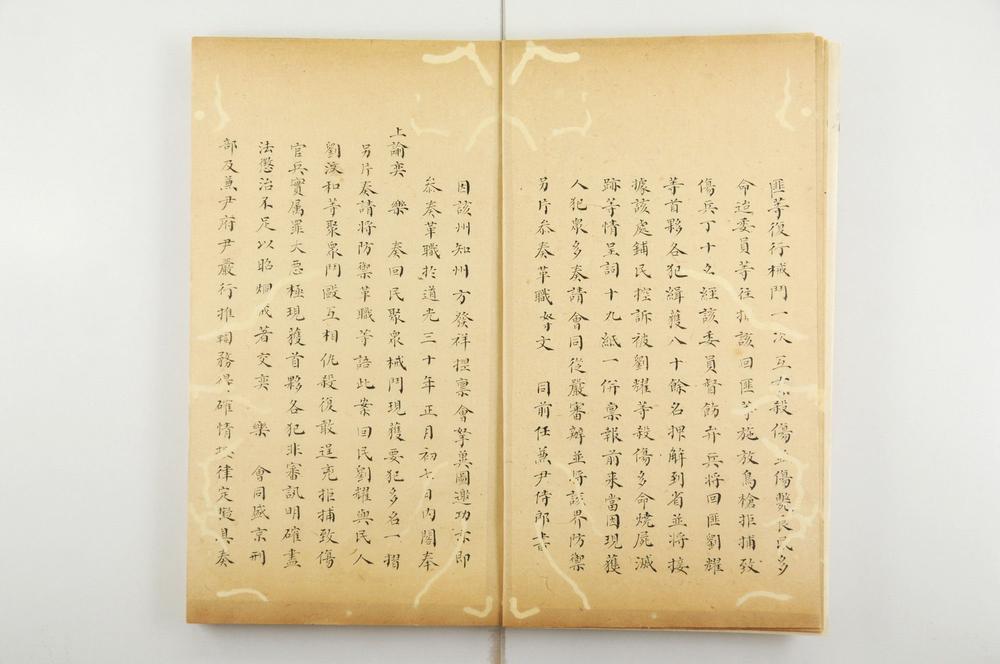 匪等復行械鬥一次互有殺傷並傷斃良民多
命迨委員等往捕該回匪等施放鳥槍拒捕致
傷兵丁十名經該委員督飭弁兵將回匪劉耀
等首夥各犯緝獲八十餘名押解到省並將接
據該處鋪民控訴被劉耀等殺傷多命燒屍滅
跡等情呈詞十九紙一併稟報前來當因現獲
人犯眾多奏請會同從嚴審辦並將該界防禦
另片叅奏革職 文 同前任兼尹侍郎書
因該州知州方發祥捏稟會拏冀圖邀功亦即
叅奏革職於道光三十年正月初七日內閣奉
上諭奕 樂 奏回民聚眾械鬥現獲要犯多名一摺
另片奏請將防禦革職等語此案回民劉耀與民人
劉 和等聚眾鬥毆互相仇殺復敢逞兇拒捕致傷
官兵實屬罪大惡極現獲首夥各犯非審訊明確盡
法懲治不足以昭烱戒著交奕 樂 會同盛京刑
部及兼尹府尹嚴行推鞫務得確情按律定擬具奏